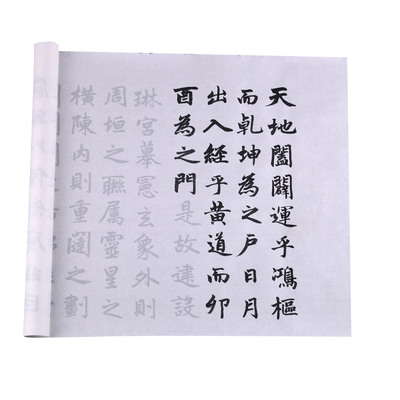 天地闔闢運乎鴻樞
而乾坤為之戶日月
出入經乎黃道而卯
酉為之門是故建設
琳宮摹憲玄象外則
周垣之聯屬靈星之
橫陳內則重闥之劃